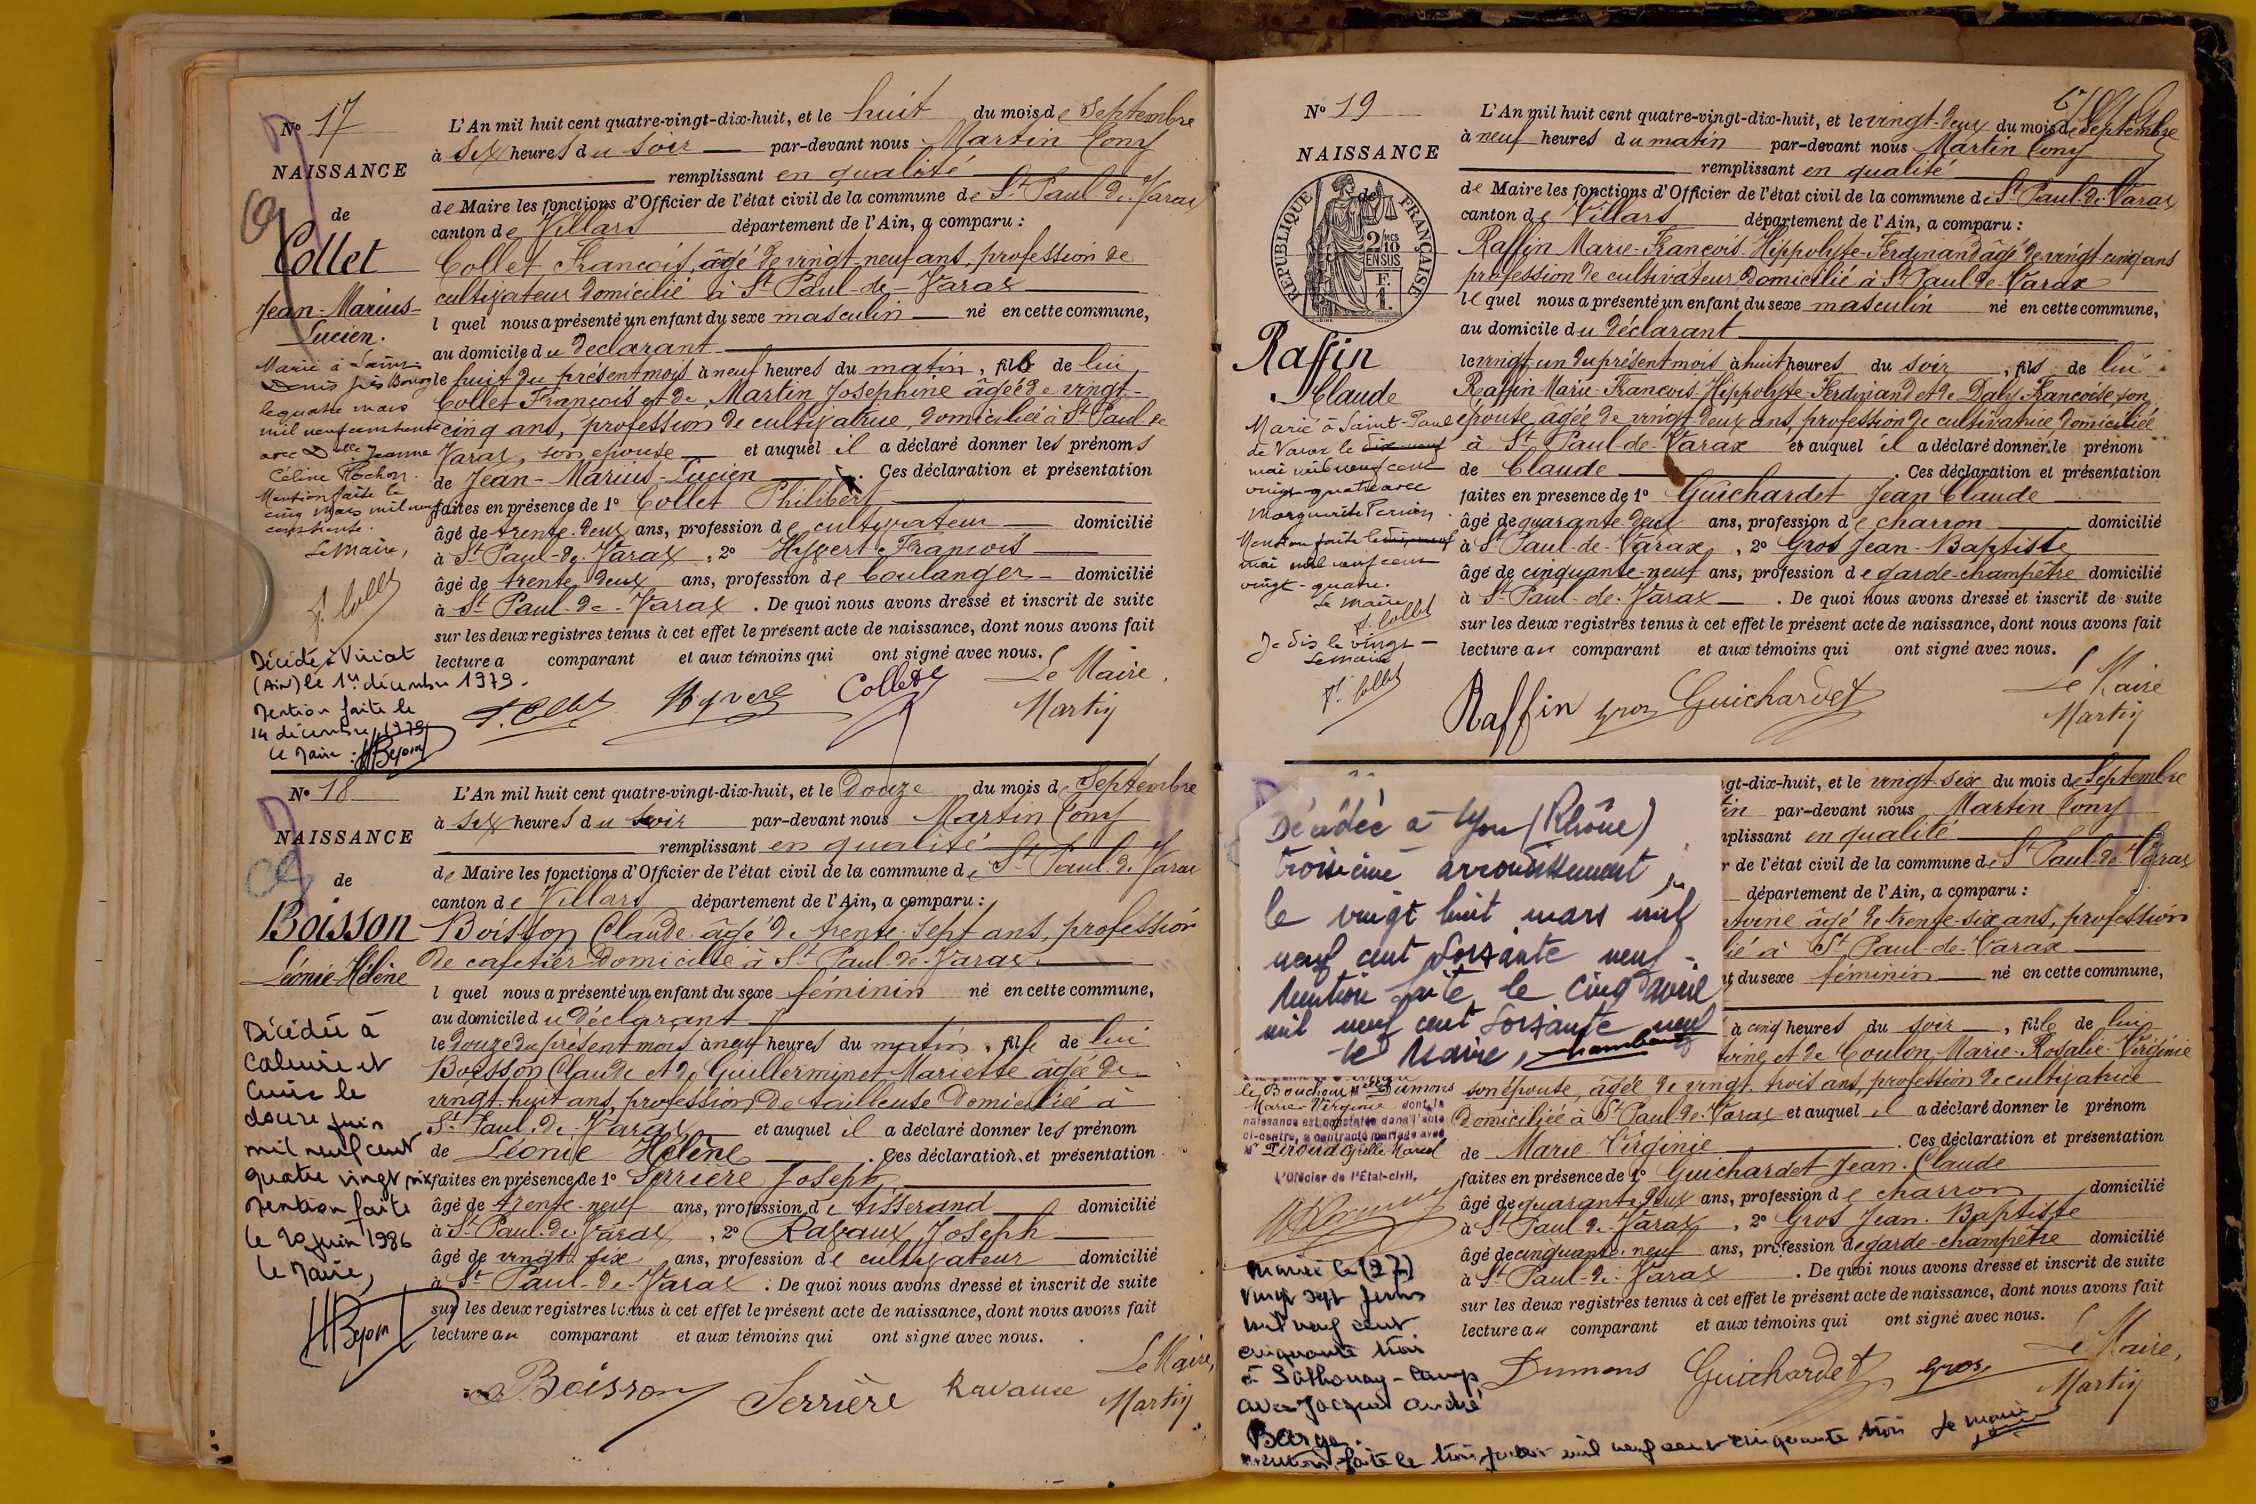 Nº 17
NAISSANCE
de
Collet
Jean-Marius-
Lucien.
Marié à Saint-
Denis
le quatre mars
mil neuf cent trente
avec Delle Jeanne
Céline Rochon.
Mention faite le
cinq mars mil neuf
cent trente.
Le Maire,
F. Collet
Décédé à Viriat
(Ain) le 1er décembre 1979.
Mention faite le
14 décembre 1979
Le Maire :
L'An mil huit cent quatre-vingt-dix-huit, et le huit du mois de Septembre
à six heures du soir par-devant nous Martin Tony
remplissant en qualité
de Maire les fonctions d'Officier de l'état civil de la commune de St Paul-de-Varax
canton de Villars département de l'Ain, a comparu :
Collet François, âgé de vingt-neuf ans, profession de
cultivateur domicilié à St Paul-de-Varax
l quel nous a présenté un enfant du sexe masculin né en cette commune,
au domicile du déclarant
le huit du présent mois à neuf heures du matin, fils de lui
Collet François et de Martin Josephine âgée de vingt-
cinq ans, profession de cultivatrice, domiciliée à St Paul-de
Varax, son épouse et auquel il a déclaré donner les prénoms
de Jean-Marius-Lucien . Ces déclaration et présentation
faites en présence de 1º Collet Philibert
âgé de trente-deux ans, profession de cultivateur domicilié
à St Paul-de-Varax, 2º Hyvert François
âgé de trente deux ans, profession de boulanger domicilié
à St Paul-de-Varax . De quoi nous avons dressé et inscrit de suite
sur les deux registres tenus à cet effet le présent acte de naissance, dont nous avons fait
lecture a comparant et aux témoins qui ont signé avec nous.
Le Maire,
F. Collet Hyvert Collet Martin
Nº 18
NAISSANCE
de
Boisson
Léonie-Hélène
Décédée à
Caluire et
Cuire le
douze juin
mil neuf cent
quatre vingt six
Mention faite
le 20 juin 1986
Le Maire,
L'An mil huit cent quatre-vingt-dix-huit, et le douze du mois de Septembre
à six heures du soir par-devant nous Martin Tony
remplissant en qualité
de Maire les fonctions d'Officier de l'état civil de la commune de St Paul-de-Varax
canton de Villars département de l'Ain, a comparu :
Boisson Claude âgé de trente-sept ans, profession
de cafetier domicilié à St Paul-de-Varax
l quel nous a présenté un enfant du sexe féminin né en cette commune,
au domicile du déclarant
le douze du présent mois à neuf heures du matin, fille de lui
Boisson Claude et de Guillerminet Mariette âgée de
vingt-huit ans, profession de tailleuse domiciliée à
St Paul-de-Varax et auquel il a déclaré donner les prénom
de Léonie Hélène . Ces déclaration et présentation
faites en présence de 1º Serrière Joseph
âgé de trente-neuf ans, profession de tisserand domicilié
à St Paul-de-Varax, 2º Ravaux Joseph
âgé de vingt six ans, profession de cultivateur domicilié
à St Paul-de-Varax . De quoi nous avons dressé et inscrit de suite
sur les deux registres tenus à cet effet le présent acte de naissance, dont nous avons fait
lecture au comparant et aux témoins qui ont signé avec nous.
Le Maire,
Boisson Serrière Ravaux Martin
Nº 19
NAISSANCE
de
RÉPUBLIQUE FRANÇAISE
2/10
EN SUS
F.
1.
Raffin
Claude
Marié à Saint-Paul
de Varax le dix-neuf
mai mil neuf cent
vingt-quatre avec
Marguerite
Mention faite le dix-neuf
mai mil neuf cent
vingt-quatre.
Le Maire
F. Collet
Je dis le vingt
Le Maire
F. Collet
L'An mil huit cent quatre-vingt-dix-huit, et le vingt-deux du mois de Septembre
à neuf heures du matin par-devant nous Martin Tony
remplissant en qualité
de Maire les fonctions d'Officier de l'état civil de la commune de St Paul-de-Varax
canton de Villars département de l'Ain, a comparu :
Raffin Marie-François-Hippolyte-Ferdinand âgé de vingt cinq ans
profession de cultivateur domicilié à St Paul-de-Varax
le quel nous a présenté un enfant du sexe masculin né en cette commune,
au domicile du déclarant
le vingt-un du présent mois à huit heures du soir, fils de lui
Raffin Marie-François-Hippolyte-Ferdinand et de Daly Françoise son
épouse âgée de vingt deux ans, profession de cultivatrice domiciliée
à St Paul-de-Varax et auquel il a déclaré donner le prénom
de Claude . Ces déclaration et présentation
faites en présence de 1º Guichardet Jean Claude
âgé de quarante-deux ans, profession de charron domicilié
à St Paul-de-Varax, 2º Gros Jean-Baptiste
âgé de cinquante-neuf ans, profession de garde-champêtre domicilié
à St Paul-de-Varax . De quoi nous avons dressé et inscrit de suite
sur les deux registres tenus à cet effet le présent acte de naissance, dont nous avons fait
lecture au comparant et aux témoins qui ont signé avec nous.
Le Maire
Raffin Gros Guichardet Martin
Décédée à Lyon (Rhône)
troisième arrondissement,
le vingt huit mars mil
neuf cent soixante neuf -
Mention faite le cinq avril
mil neuf cent soixante neuf
Le Maire,
gt-dix-huit, et le vingt-six du mois de Septembre
in par-devant nous Martin Tony
mplissant en qualité
r de l'état civil de la commune de St Paul-de-Varax
département de l'Ain, a comparu :
ntoine âgé de trente-six ans, profession
lié à St Paul-de-Varax
t du sexe féminin né en cette commune,
à cinq heures du soir, fille de lui
toine et de Coulon Marie-Rosalie-Virginie
son épouse, âgée de vingt-trois ans, profession de cultivatrice
domiciliée à St Paul-de-Varax et auquel il a déclaré donner le prénom
de Marie-Virginie . Ces déclaration et présentation
faites en présence de 1º Guichardet Jean-Claude
âgé de quarante deux ans, profession de charron domicilié
à St Paul-de-Varax, 2º Gros Jean-Baptiste
âgé de cinquante-neuf ans, profession de garde-champêtre domicilié
à St Paul-de-Varax . De quoi nous avons dressé et inscrit de suite
sur les deux registres tenus à cet effet le présent acte de naissance, dont nous avons fait
lecture au comparant et aux témoins qui ont signé avec nous.
Le Maire,
Dumons Guichardet Gros Martin
Dumons
Marie-Virginie dont la
naissance est constatée dans l'acte
ci-contre, a contracté mariage avec
Mr
L'Officier de l'État-civil,
Mariée le (27)
vingt sept juin
mil neuf cent
cinquante trois
à Sathonay-Camp
avec Jacques André
Barge.
Mention faite le trois juillet mil neuf cent cinquante trois Le Maire